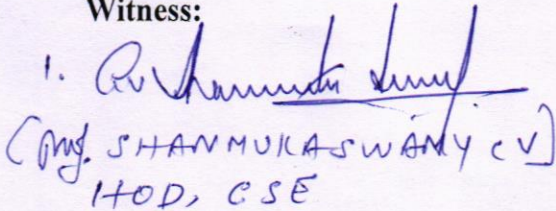 Witness:
1.
(Prof. SHANMUKASWAMY C V)
HOD, CSE